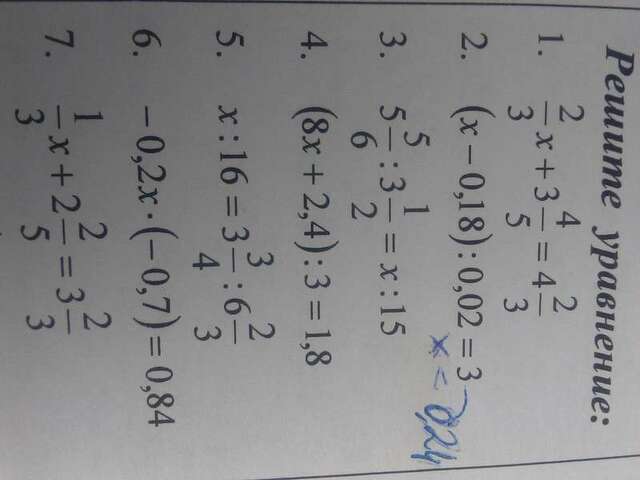 Решите уравнение:
1. 2/3 x + 3 4/5 = 4 2/3
2. (x − 0,18) : 0,02 = 3
x = 0,24
3. 5 5/6 : 3 1/2 = x : 15
4. (8x + 2,4) : 3 = 1,8
5. x : 16 = 3 3/4 : 6 2/3
6. −0,2x · (−0,7) = 0,84
7. 1/3 x + 2 2/5 = 3 2/3